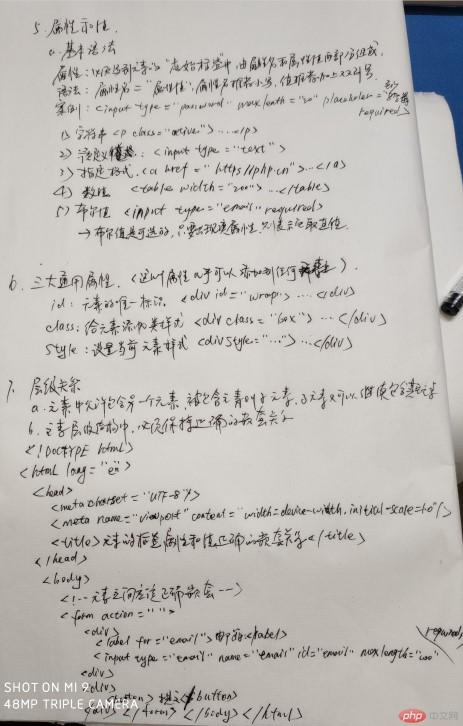 5. 属性和值.
a. 基本语法
属性: 以
语法: 属性名="属性值", 属性名推荐小写, 值推荐加上双引号.
案例: <input type="password" maxlength="20" placeholder=
required>
1) 字符串 <p class="active"> ... </p>
2) 预定义: <input type="text">
3) 指定格式. <a href="https://php.cn"> ... </a>
4) 数值 <table width="200"> ... </table>
5) 布尔值 <input type="email" required>
→ 布尔值是可选的, 只要出现该属性, 只表示取真值.
6. 三大通用属性. (这些属性几乎可以添加到任何元素上).
id: 元素的唯一标识. <div id="wrap"> ... </div>
class: 给元素添加类样式 <div class="box"> ... </div>
style: 设置当前元素样式 <div style="..."> ... </div>
7. 层级关系
a. 元素中允许包含另一个元素, 被包含元素叫子元素, 子元素又可以继续包含其它元素
b. 元素层级结构中, 必须保持正确的嵌套关系
<!DOCTYPE html>
<html lang="en">
<head>
<meta charset="UTF-8"/>
<meta name="viewport" content="width=device-width, initial-scale=1.0"/>
<title>元素的标签属性和值正确的嵌套关系</title>
</head>
<body>
<!-- 元素之间应该正确嵌套 -->
<form action="">
<div>
<label for="email">邮箱:<label>
<input type="email" name="email" id="email" maxlength="100" required>
<div>
<div>
<button>提交</button>
<div> </form> </body> </html>
SHOT ON MI 9
48MP TRIPLE CAMERA
php 中文网